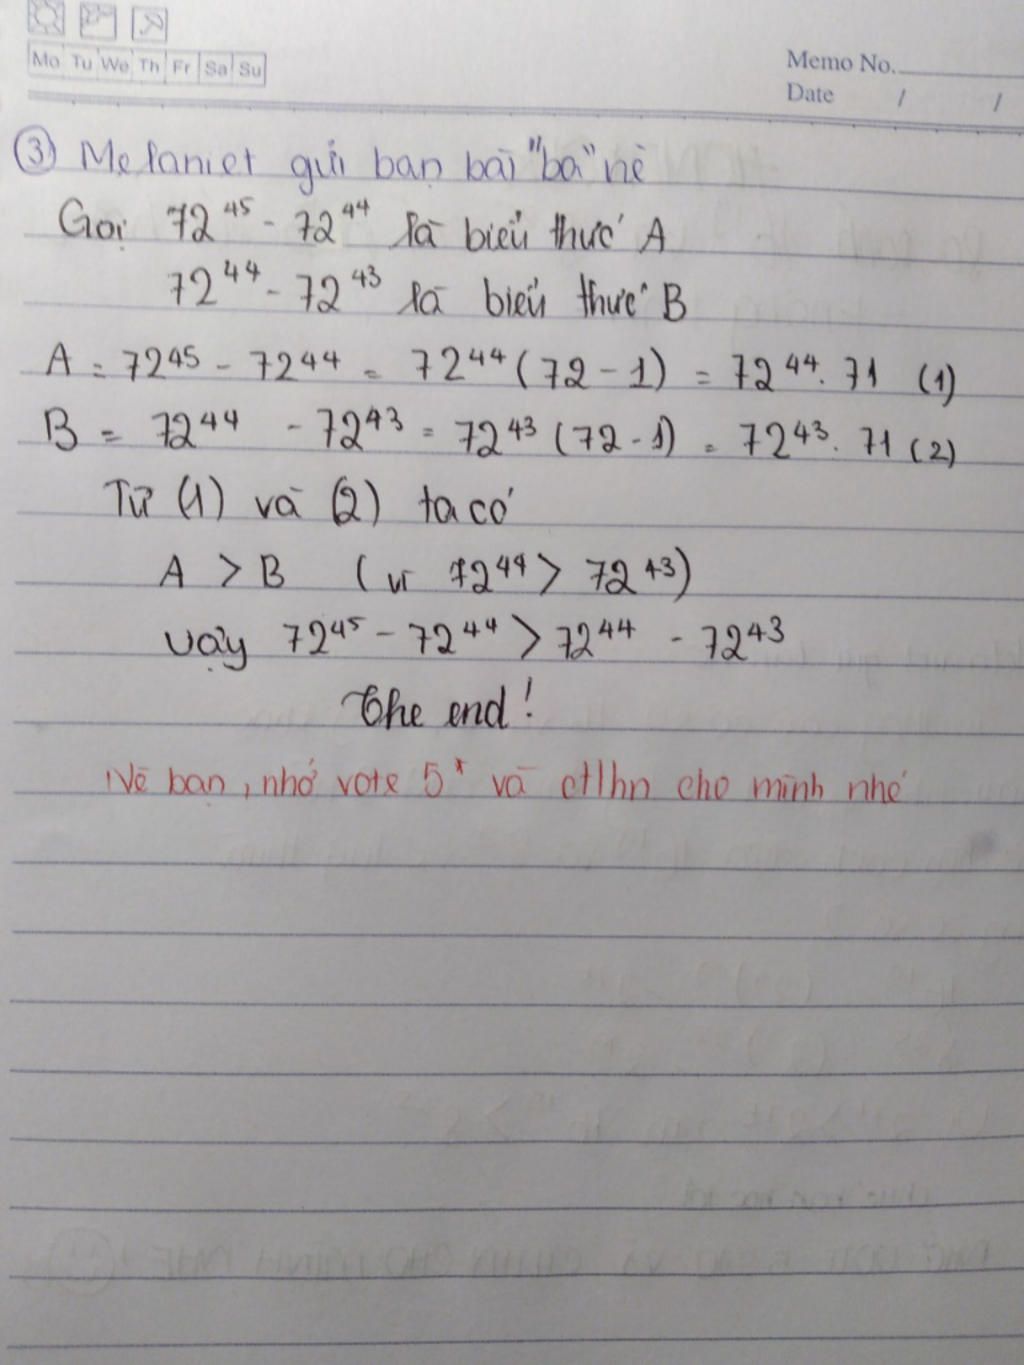 Mo Tu We Th Fr Sa Su
Memo No.
Date / /
③ Melaniet gửi bạn bài "ba" nè
Gọi 72⁴⁵ - 72⁴⁴ là biểu thức A
72⁴⁴ - 72⁴³ là biểu thức B
A = 72⁴⁵ - 72⁴⁴ = 72⁴⁴ (72 - 1) = 72⁴⁴. 71 (1)
B = 72⁴⁴ - 72⁴³ = 72⁴³ (72 - 1) = 72⁴³. 71 (2)
Từ (1) và (2) ta có
A > B (vì 72⁴⁴ > 72⁴³)
Vậy 72⁴⁵ - 72⁴⁴ > 72⁴⁴ - 72⁴³
The end!
Nè bạn, nhớ vote 5* và ctlhn cho mình nhé